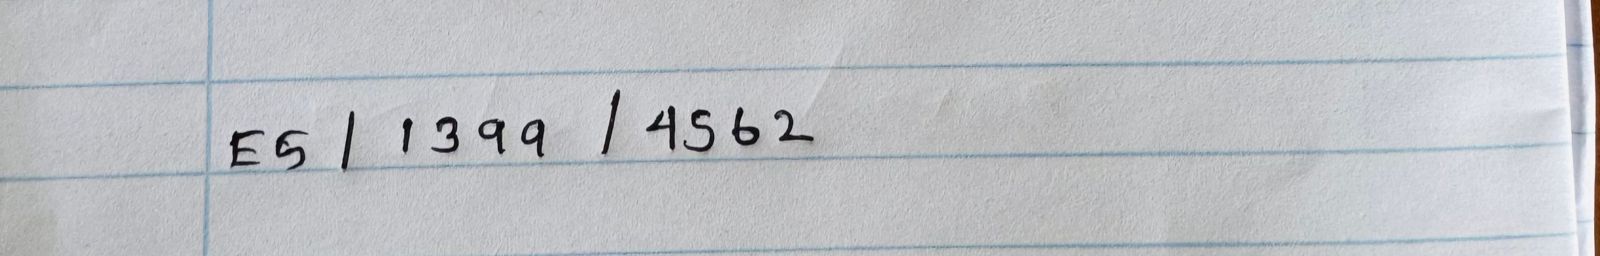 E5 / 1399 / 4562